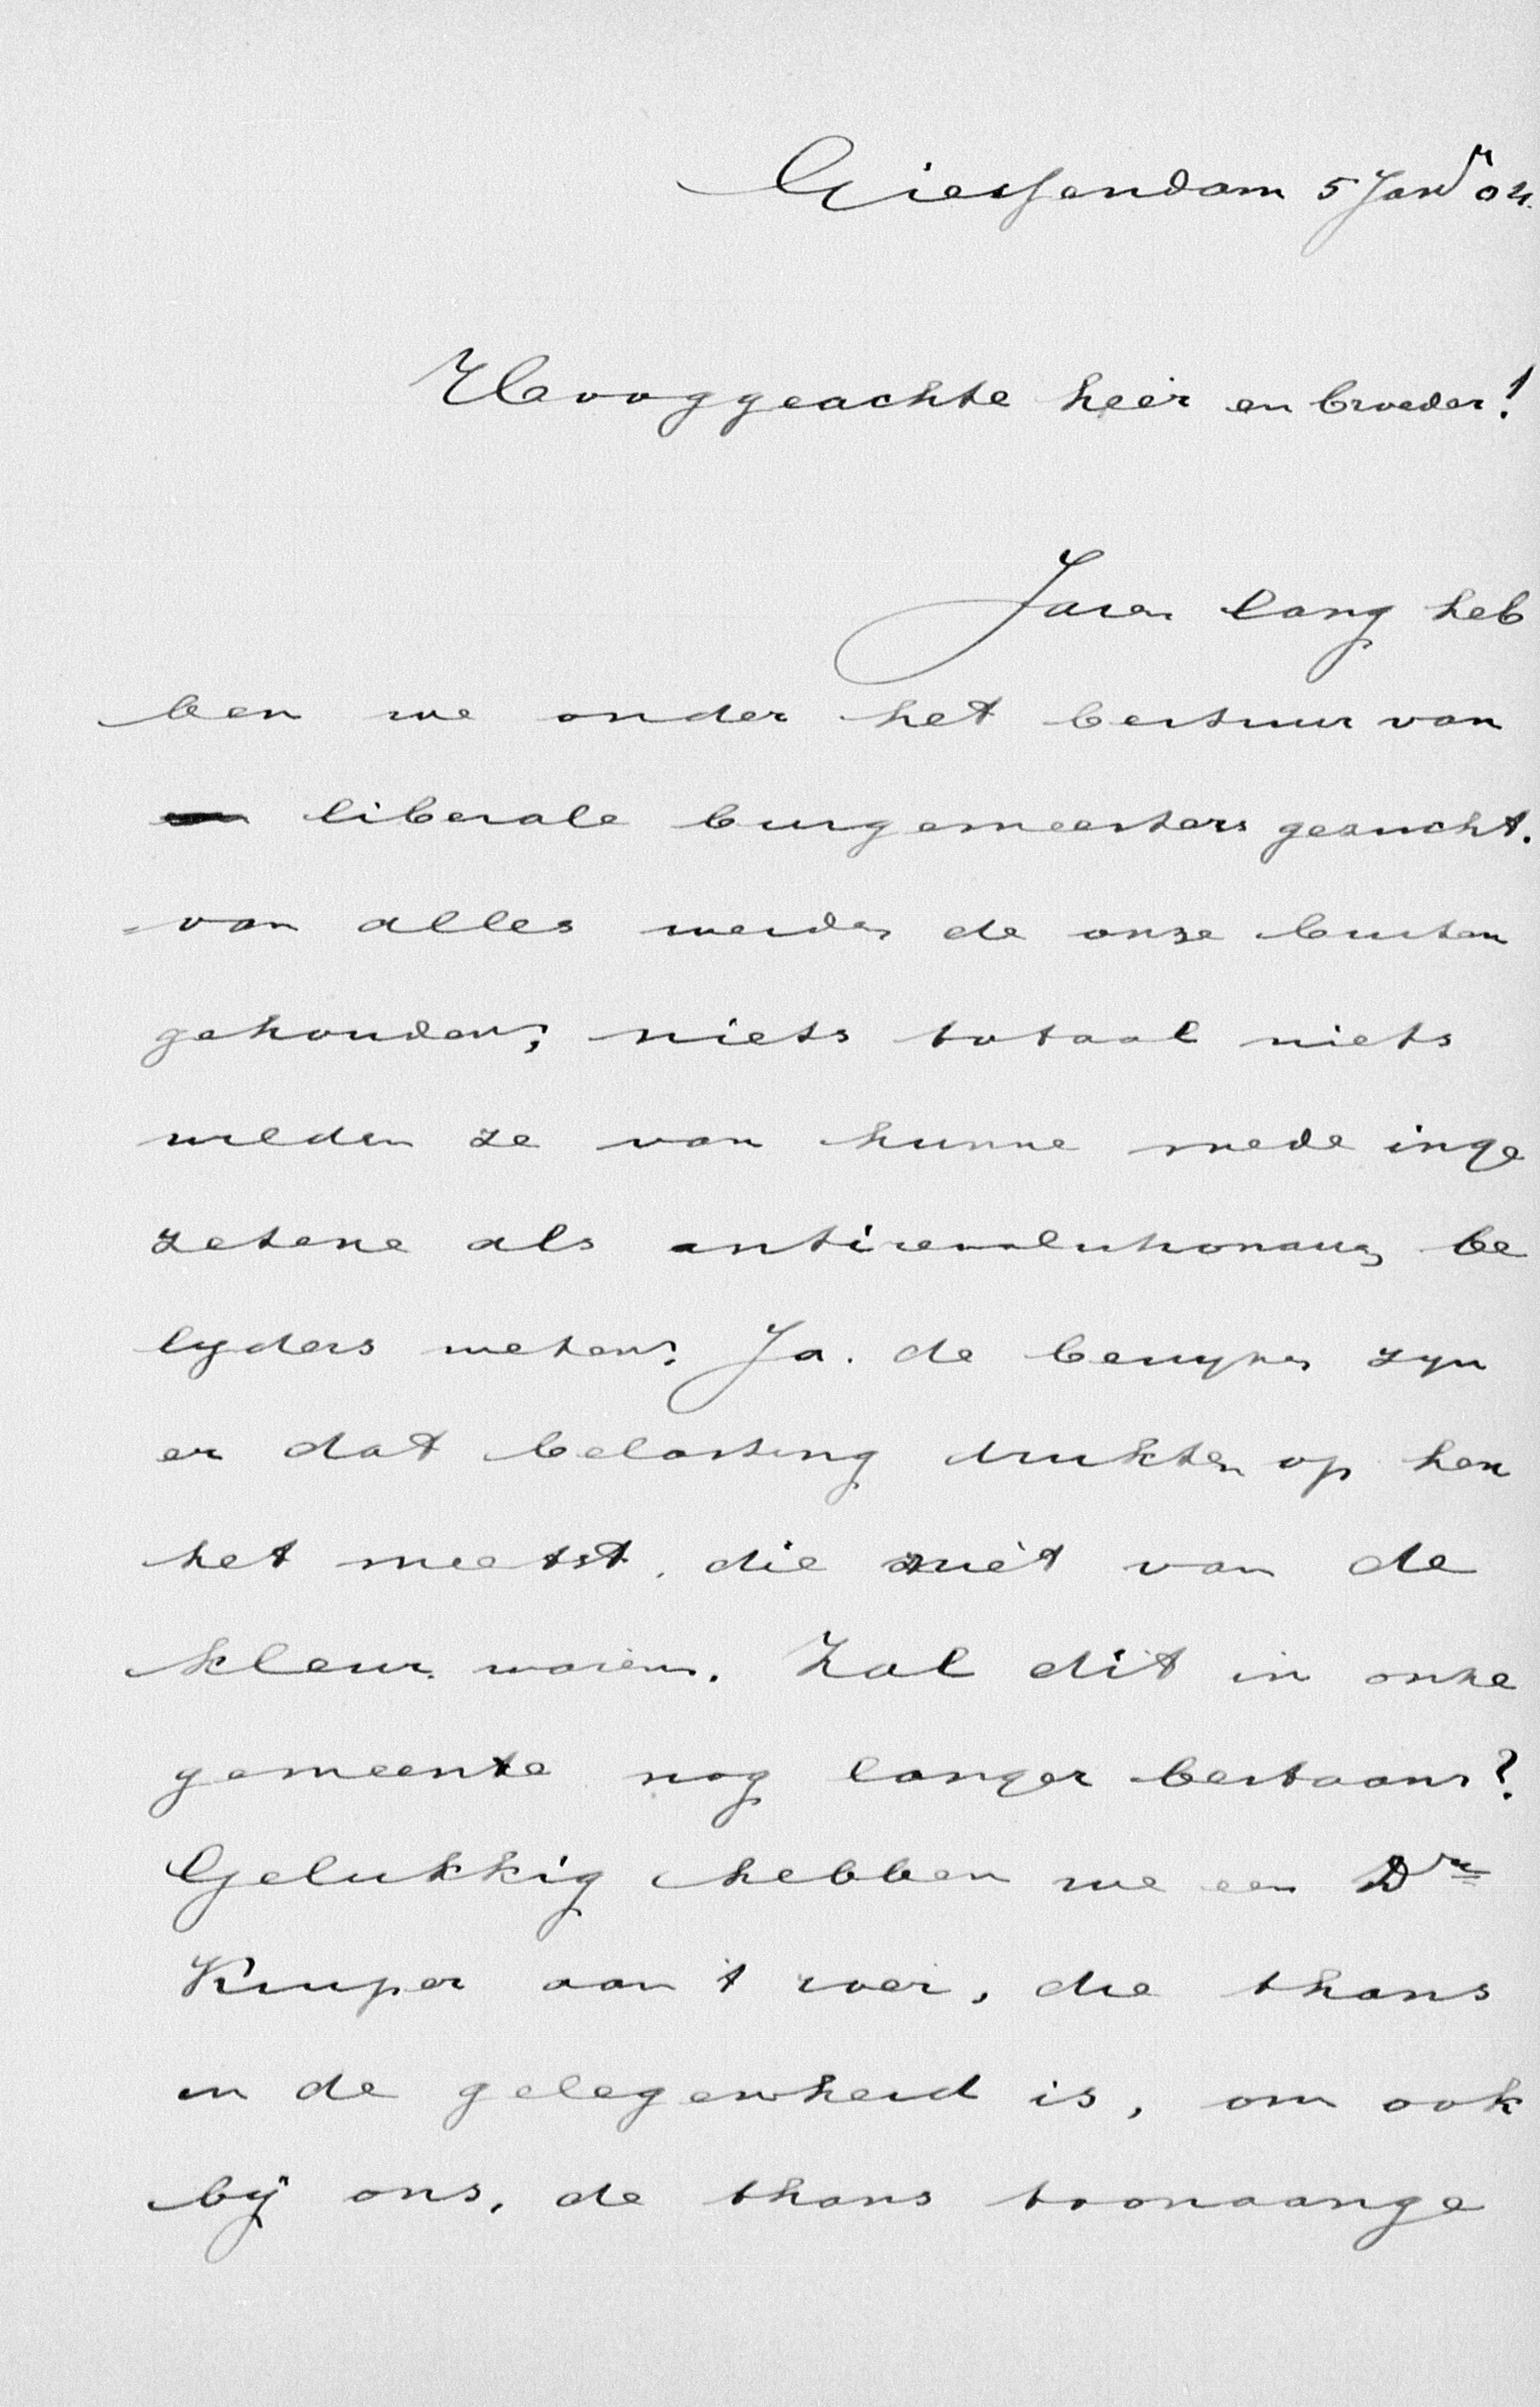 Giessendam 5 Janr 04.
Hooggeachte heer en broeder!
Jaren lang heb
ben we onder het bestuur van
liberale burgemeesters gezucht.
van alles werden de onze buiten
gehouden; niets totaal niets
wilden ze van hunne mede inge
zetene als antirevolutionaire be
lyders weten; Ja. de bewyzen zyn
er dat belasting drukten op hen
het meetst, die niet van de
kleur waren. Zal dit in onze
gemeente nog langer bestaan?
Gelukkig hebben we een Dr
Kuuper aan t roer, die thans
in de gelegenheid is, om ook
by ons, de thans toonaange